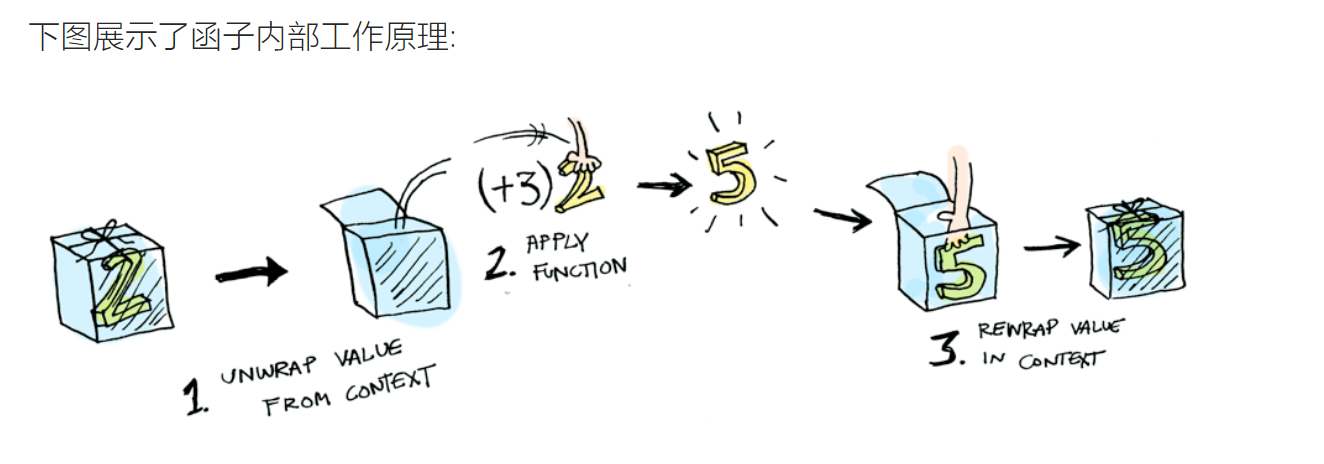 下图展示了函子内部工作原理:
2
1. UNWRAP VALUE
FROM CONTEXT
(+3)2
2. APPLY
FUNCTION
5
5
3. REWRAP VALUE
IN CONTEXT
5